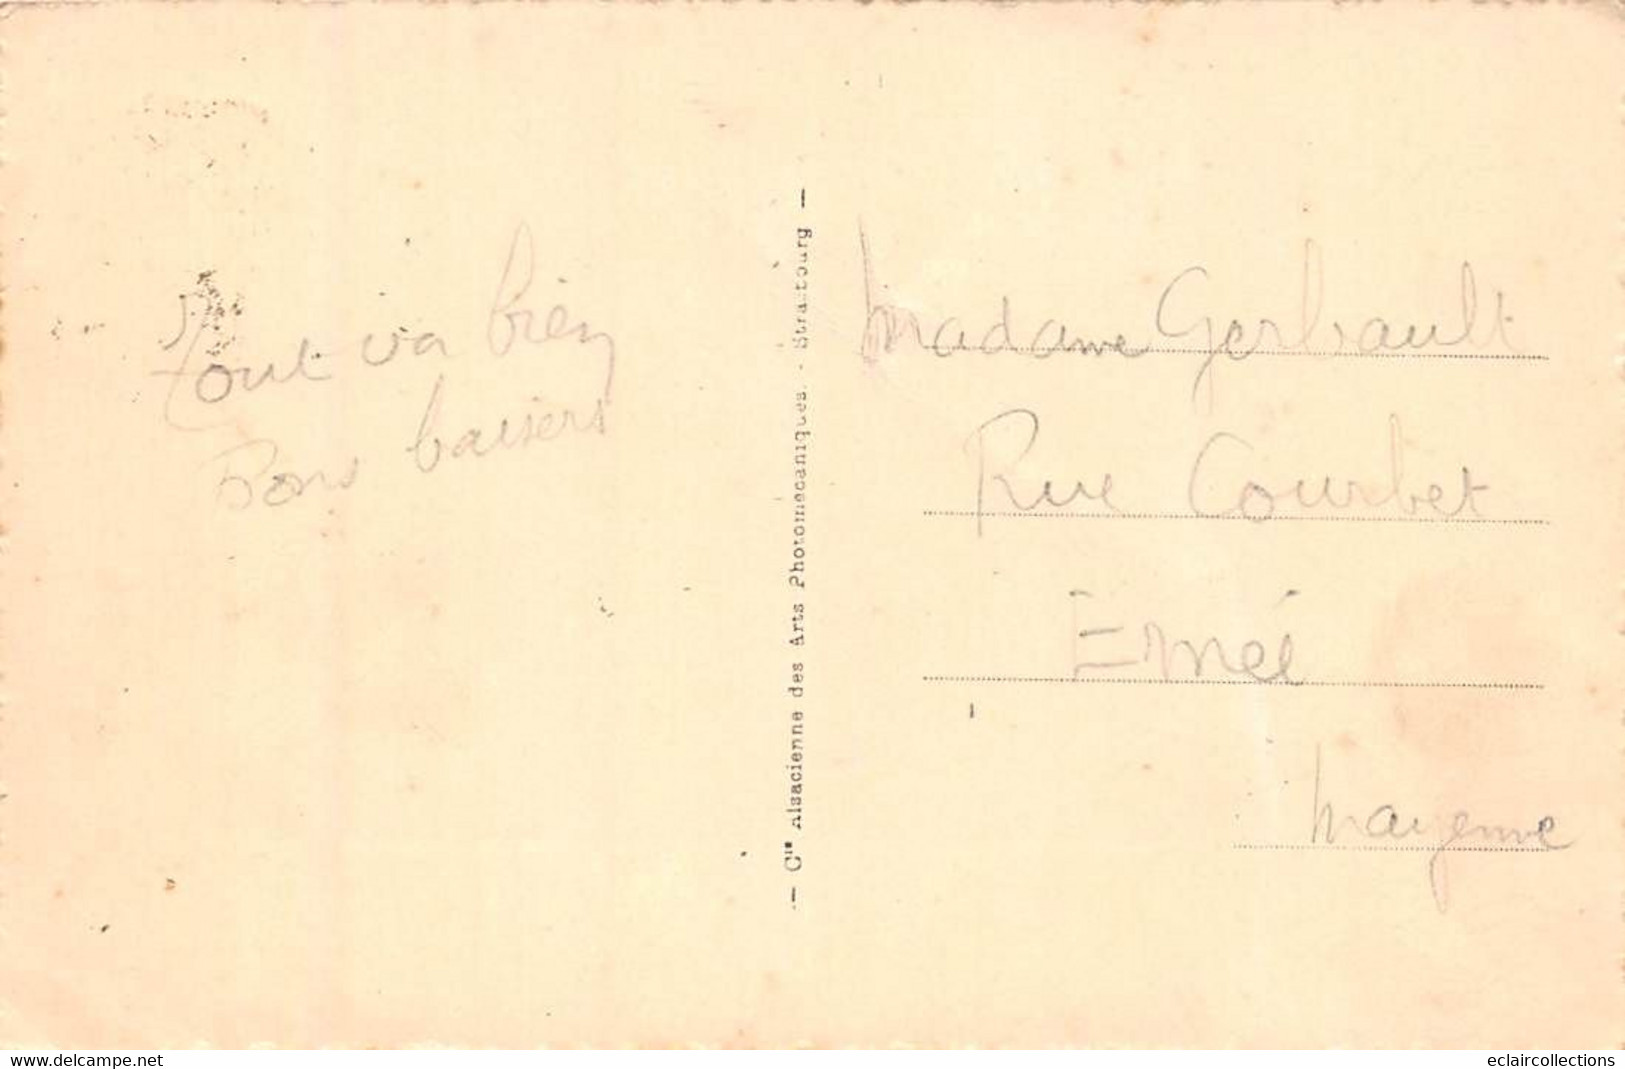 Tout va bien
Bons baisers
— Cie Alsacienne des Arts Photomécaniques. - Strasbourg —
Madame Gerbault
Rue Courbet
Ernée
Mayenne
delcampe.net
eclaircollections